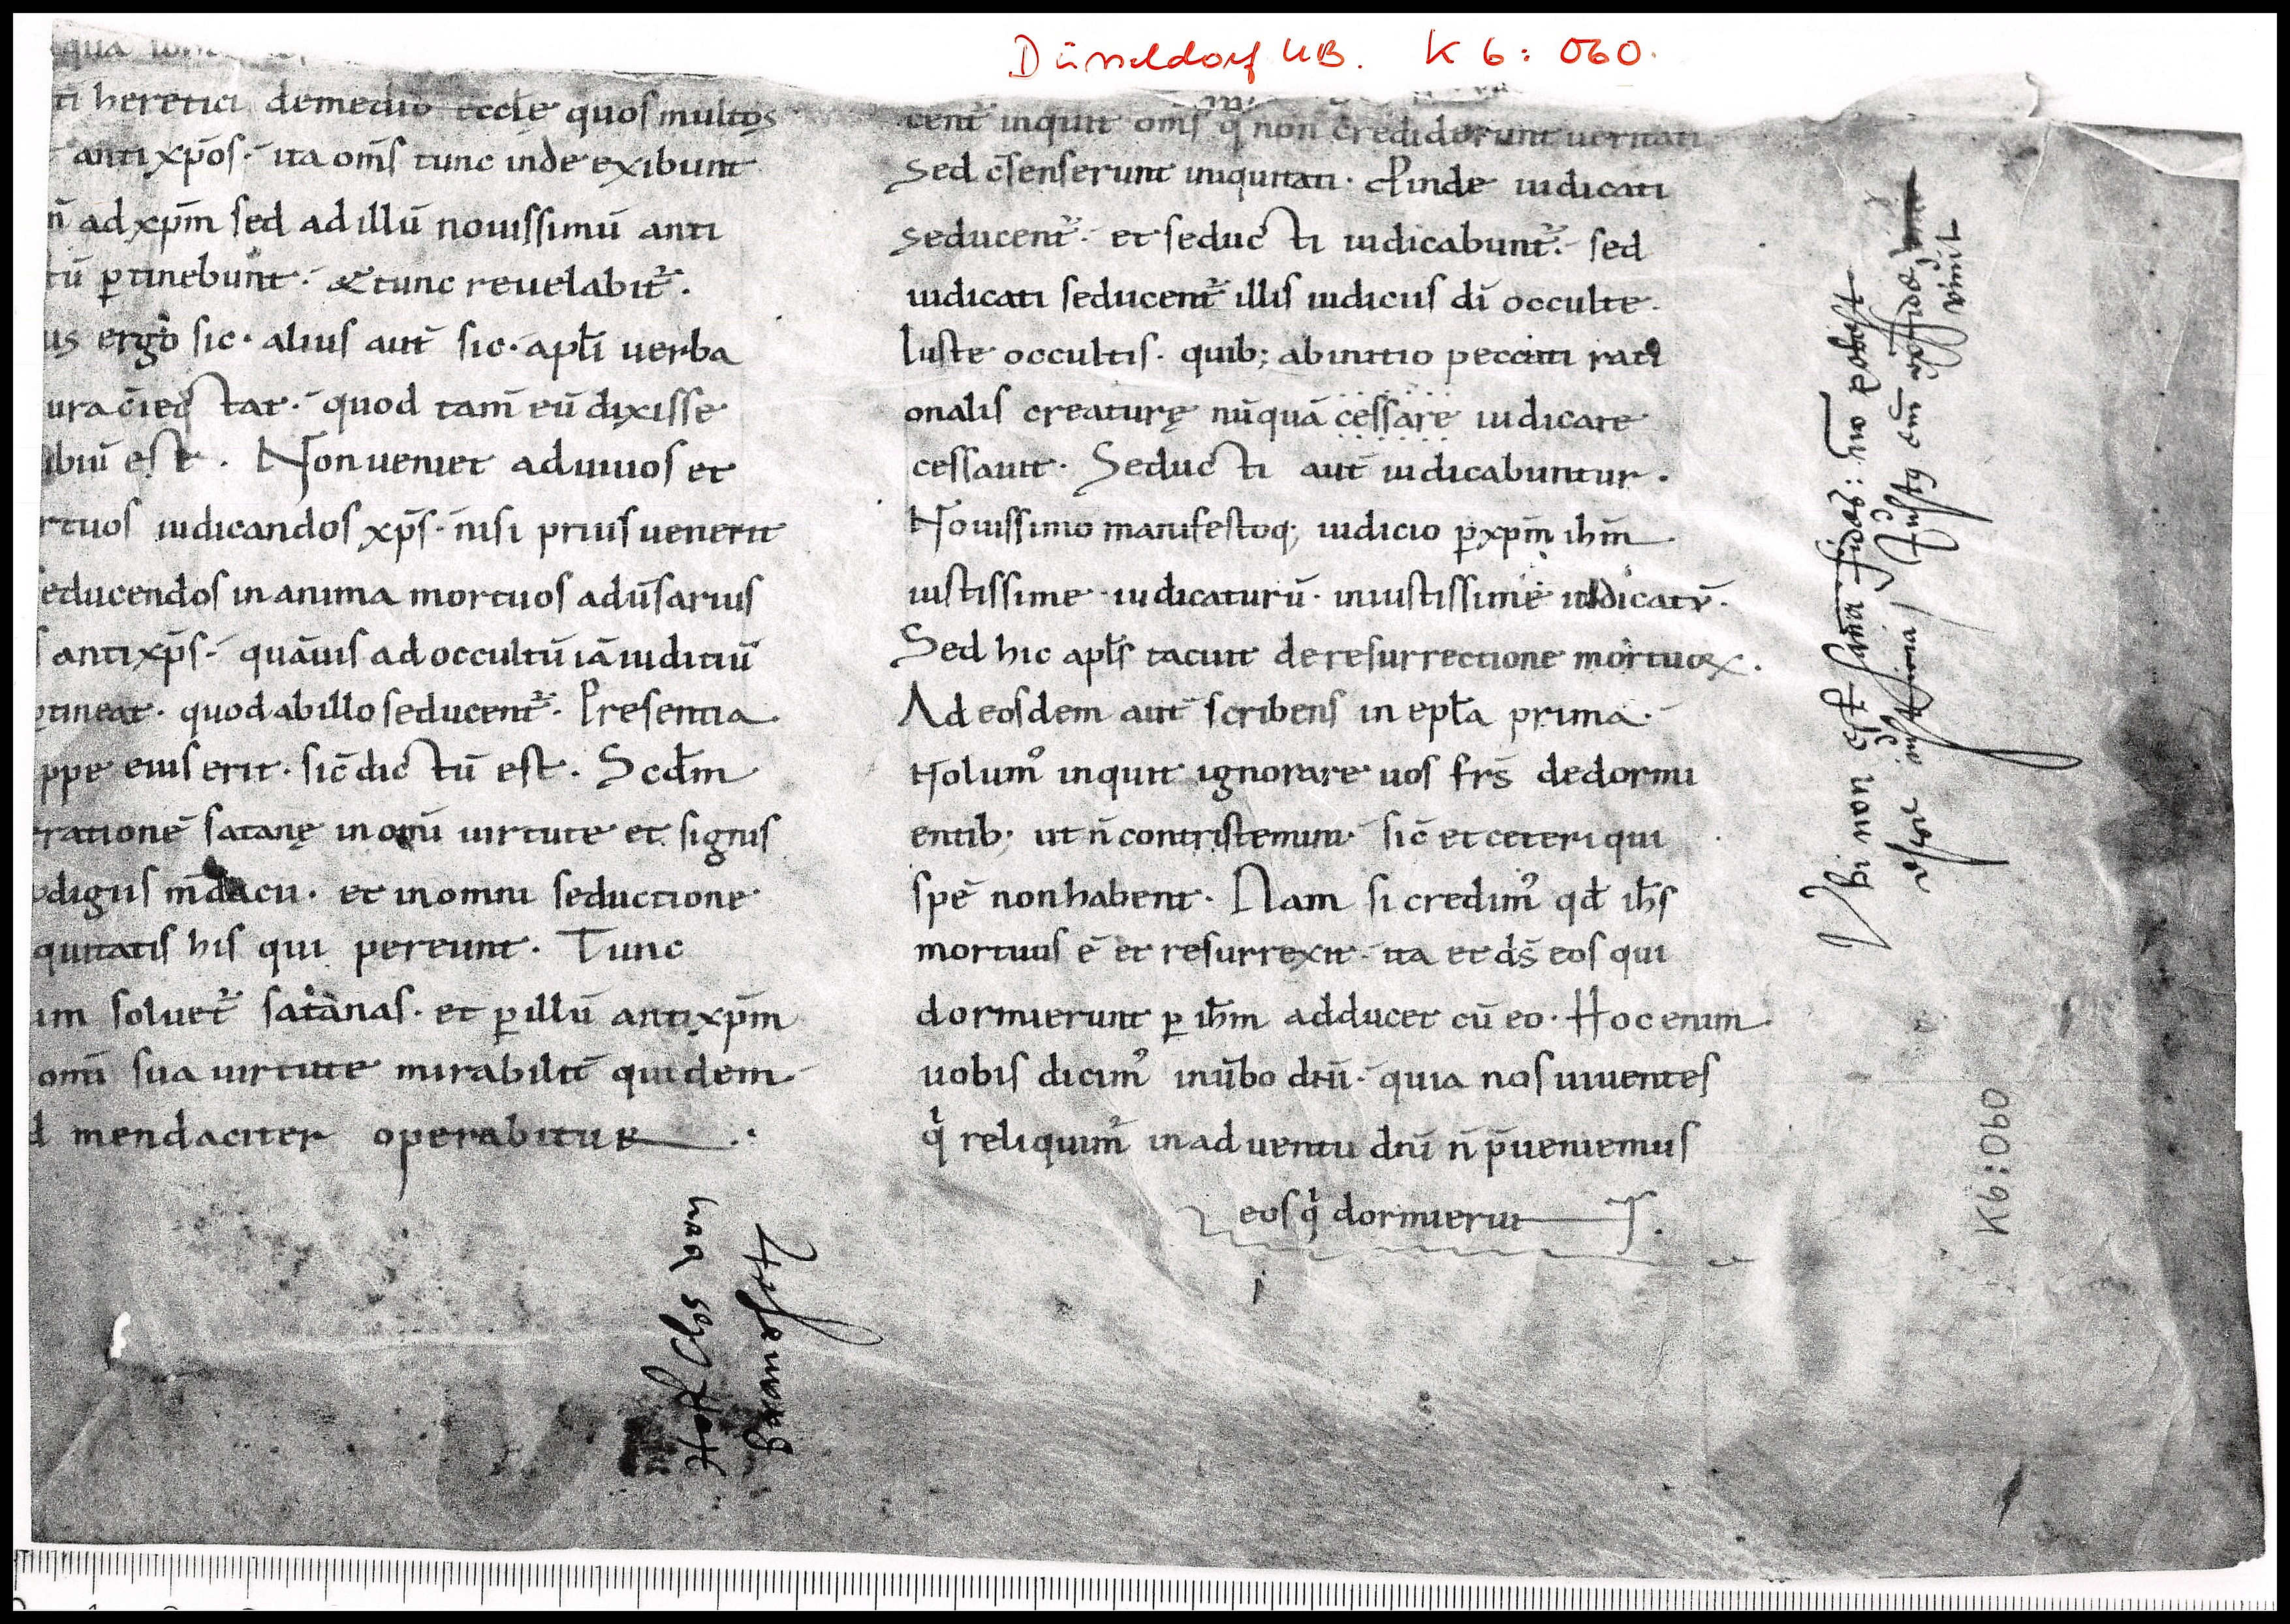 Düsseldorf UB. K 6: 060.
qua
ti heretici demedio eccłe quos multos
antixp̄os. ita om̄s tunc inde exibunt
n̄ ad xp̄m sed ad illū nouissimū anti
tū ꝑtinebunt. & tunc reuelabit᷑.
us ergo sic. alius aut̄ sic. apłi uerba
ura c̄iectat. quod tam̄ eū dixisse
ibiū est. Non ueniet ad uiuos et
rtuos iudicandos xp̄s. nisi prius uenerit
seducendos in anima mortuos adūsarius
s antixp̄s. quāuis ad occultū iā iuditiū
ꝑtineat. quod ab illo seducent᷑. Presentia
ppe eius erit. sic̄ dictū est. Scđm
erationē satanę in om̄i uirtute et signis
odigiis m̄dacii. et in omni seductione
quitatis his qui pereunt. Tunc
im soluet᷑ satanas. et ꝑ illū antixp̄m
om̄i sua uirtute mirabilit̄ quidem
d mendaciter operabitur
cent᷑ inquit om̄s q̇ non crediderunt ueritati
Sed c̄senserunt iniquitati. Proinde iudicati
seducent᷑. et seducti iudicabunt᷑. sed
iudicati seducent᷑ illis iudiciis dī occulte
Iuste occultis. quib; ab initio peccati rati
onalis creaturę nūquā cessare iudicare
cessauit. Seducti aut̄ iudicabuntur.
Nouissimo manifestoq; iudicio ꝑ xp̄m ih̄m
iustissime iudicaturū. iniustissime iudicatū.
Sed hic apłs tacuit de resurrectione mortuoꝝ.
Ad eosdem aut̄ scribens in epła prima.
Nolum᷒ inquit ignorare uos frs̄ de dormi
entib; ut n̄ contristemini. sic̄ et ceteri qui
spē non habent. Nam si credim᷒ qđ ih̄s
mortuus ē et resurrexit. ita et ds̄ eos qui
dormierunt ꝑ ih̄m adducet cū eo. Hoc enim
uobis dicim᷒ in ūbo dn̄i. quia nos uiuentes
q̇ reliquim᷒ in aduentu dn̄i n̄ p̄ueniemus
eos q̇ dormierūt
Vbi non est sana fides: nō potest
esse iustitia / Iustus em̄ ex fide
viuit
K6:060